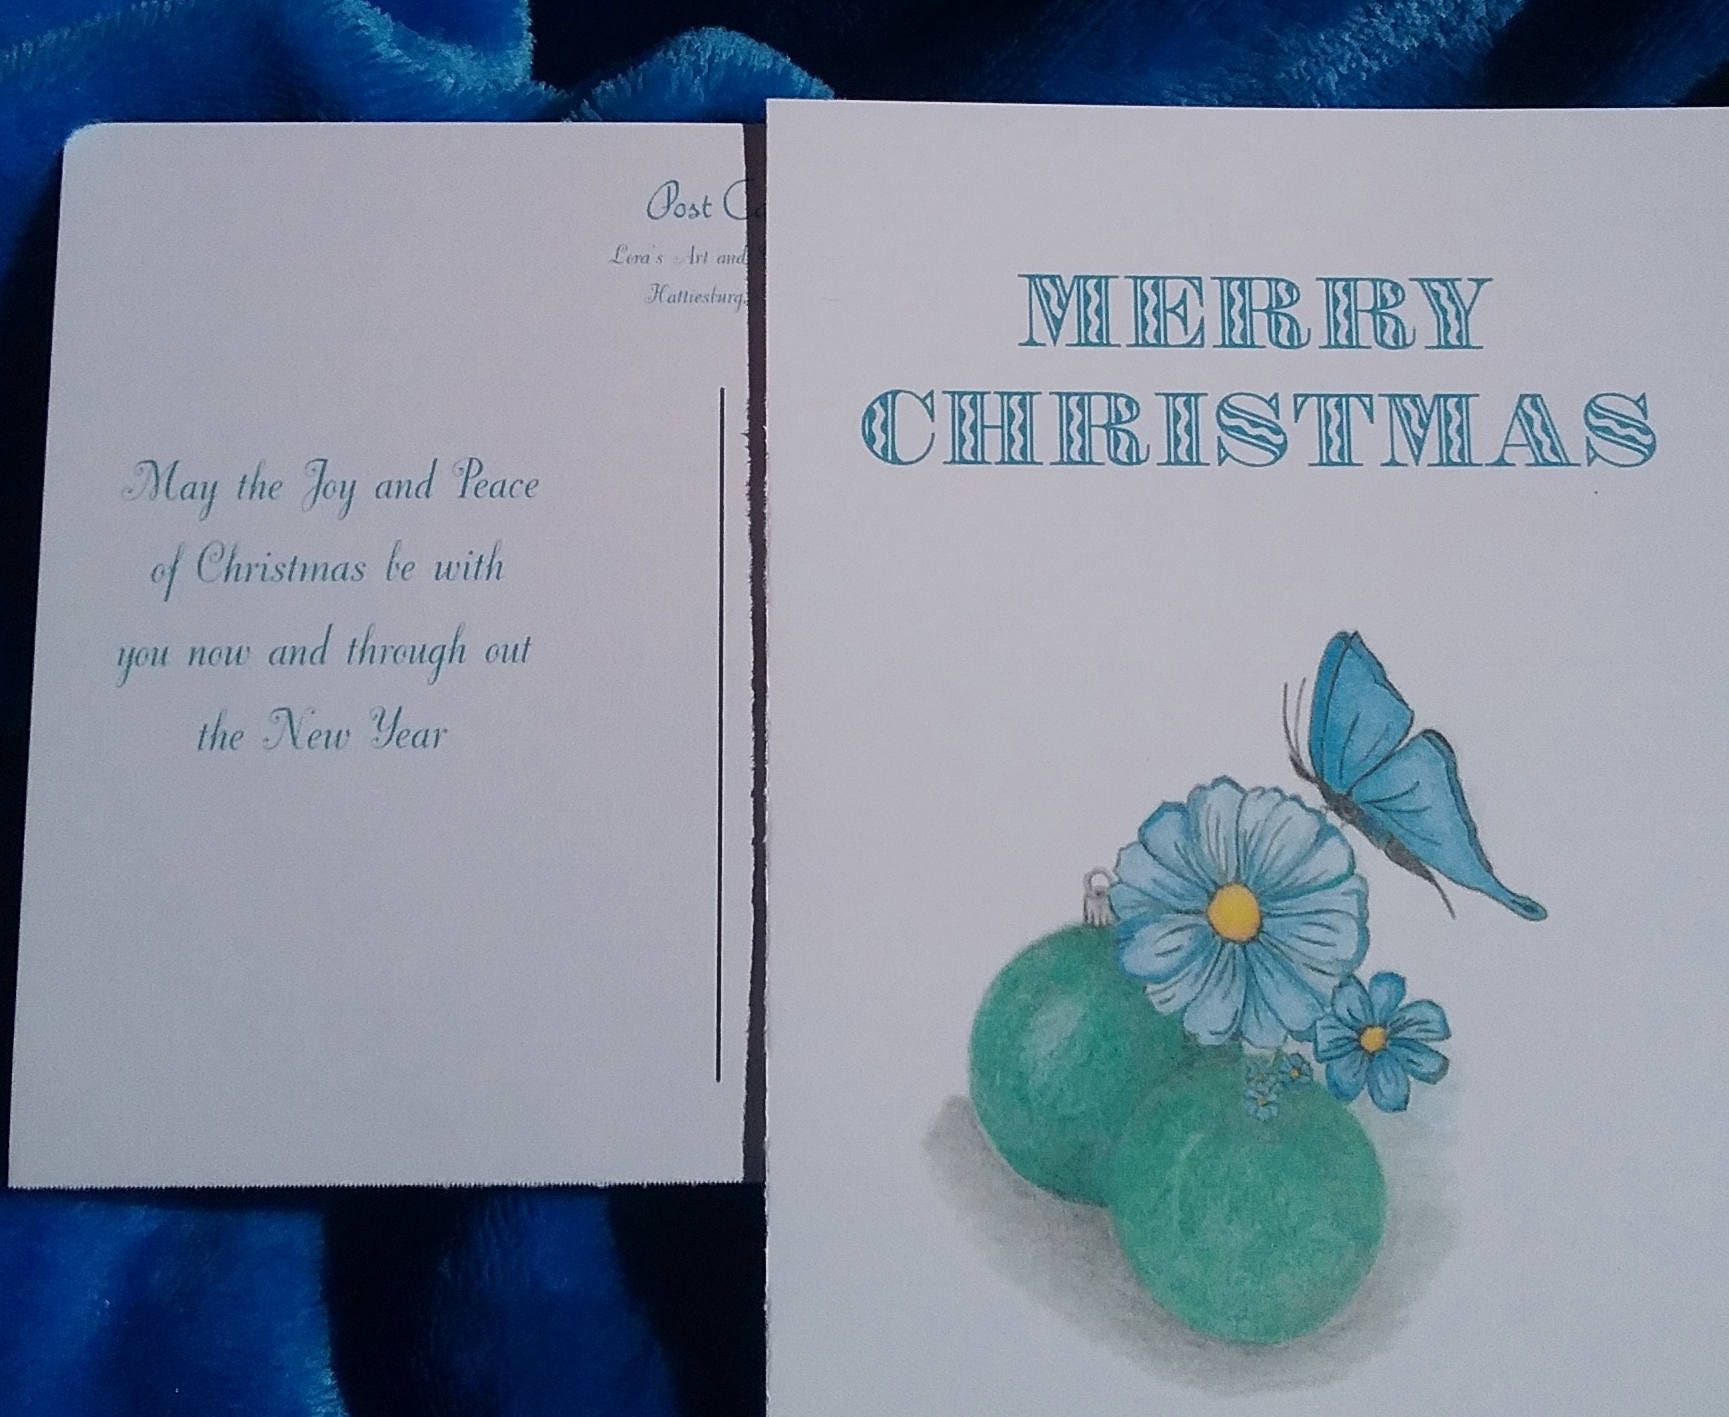 Post
Lora's Art and
Hattiesburg,
May the Joy and Peace
of Christmas be with
you now and through out
the New Year
MERRY
CHRISTMAS